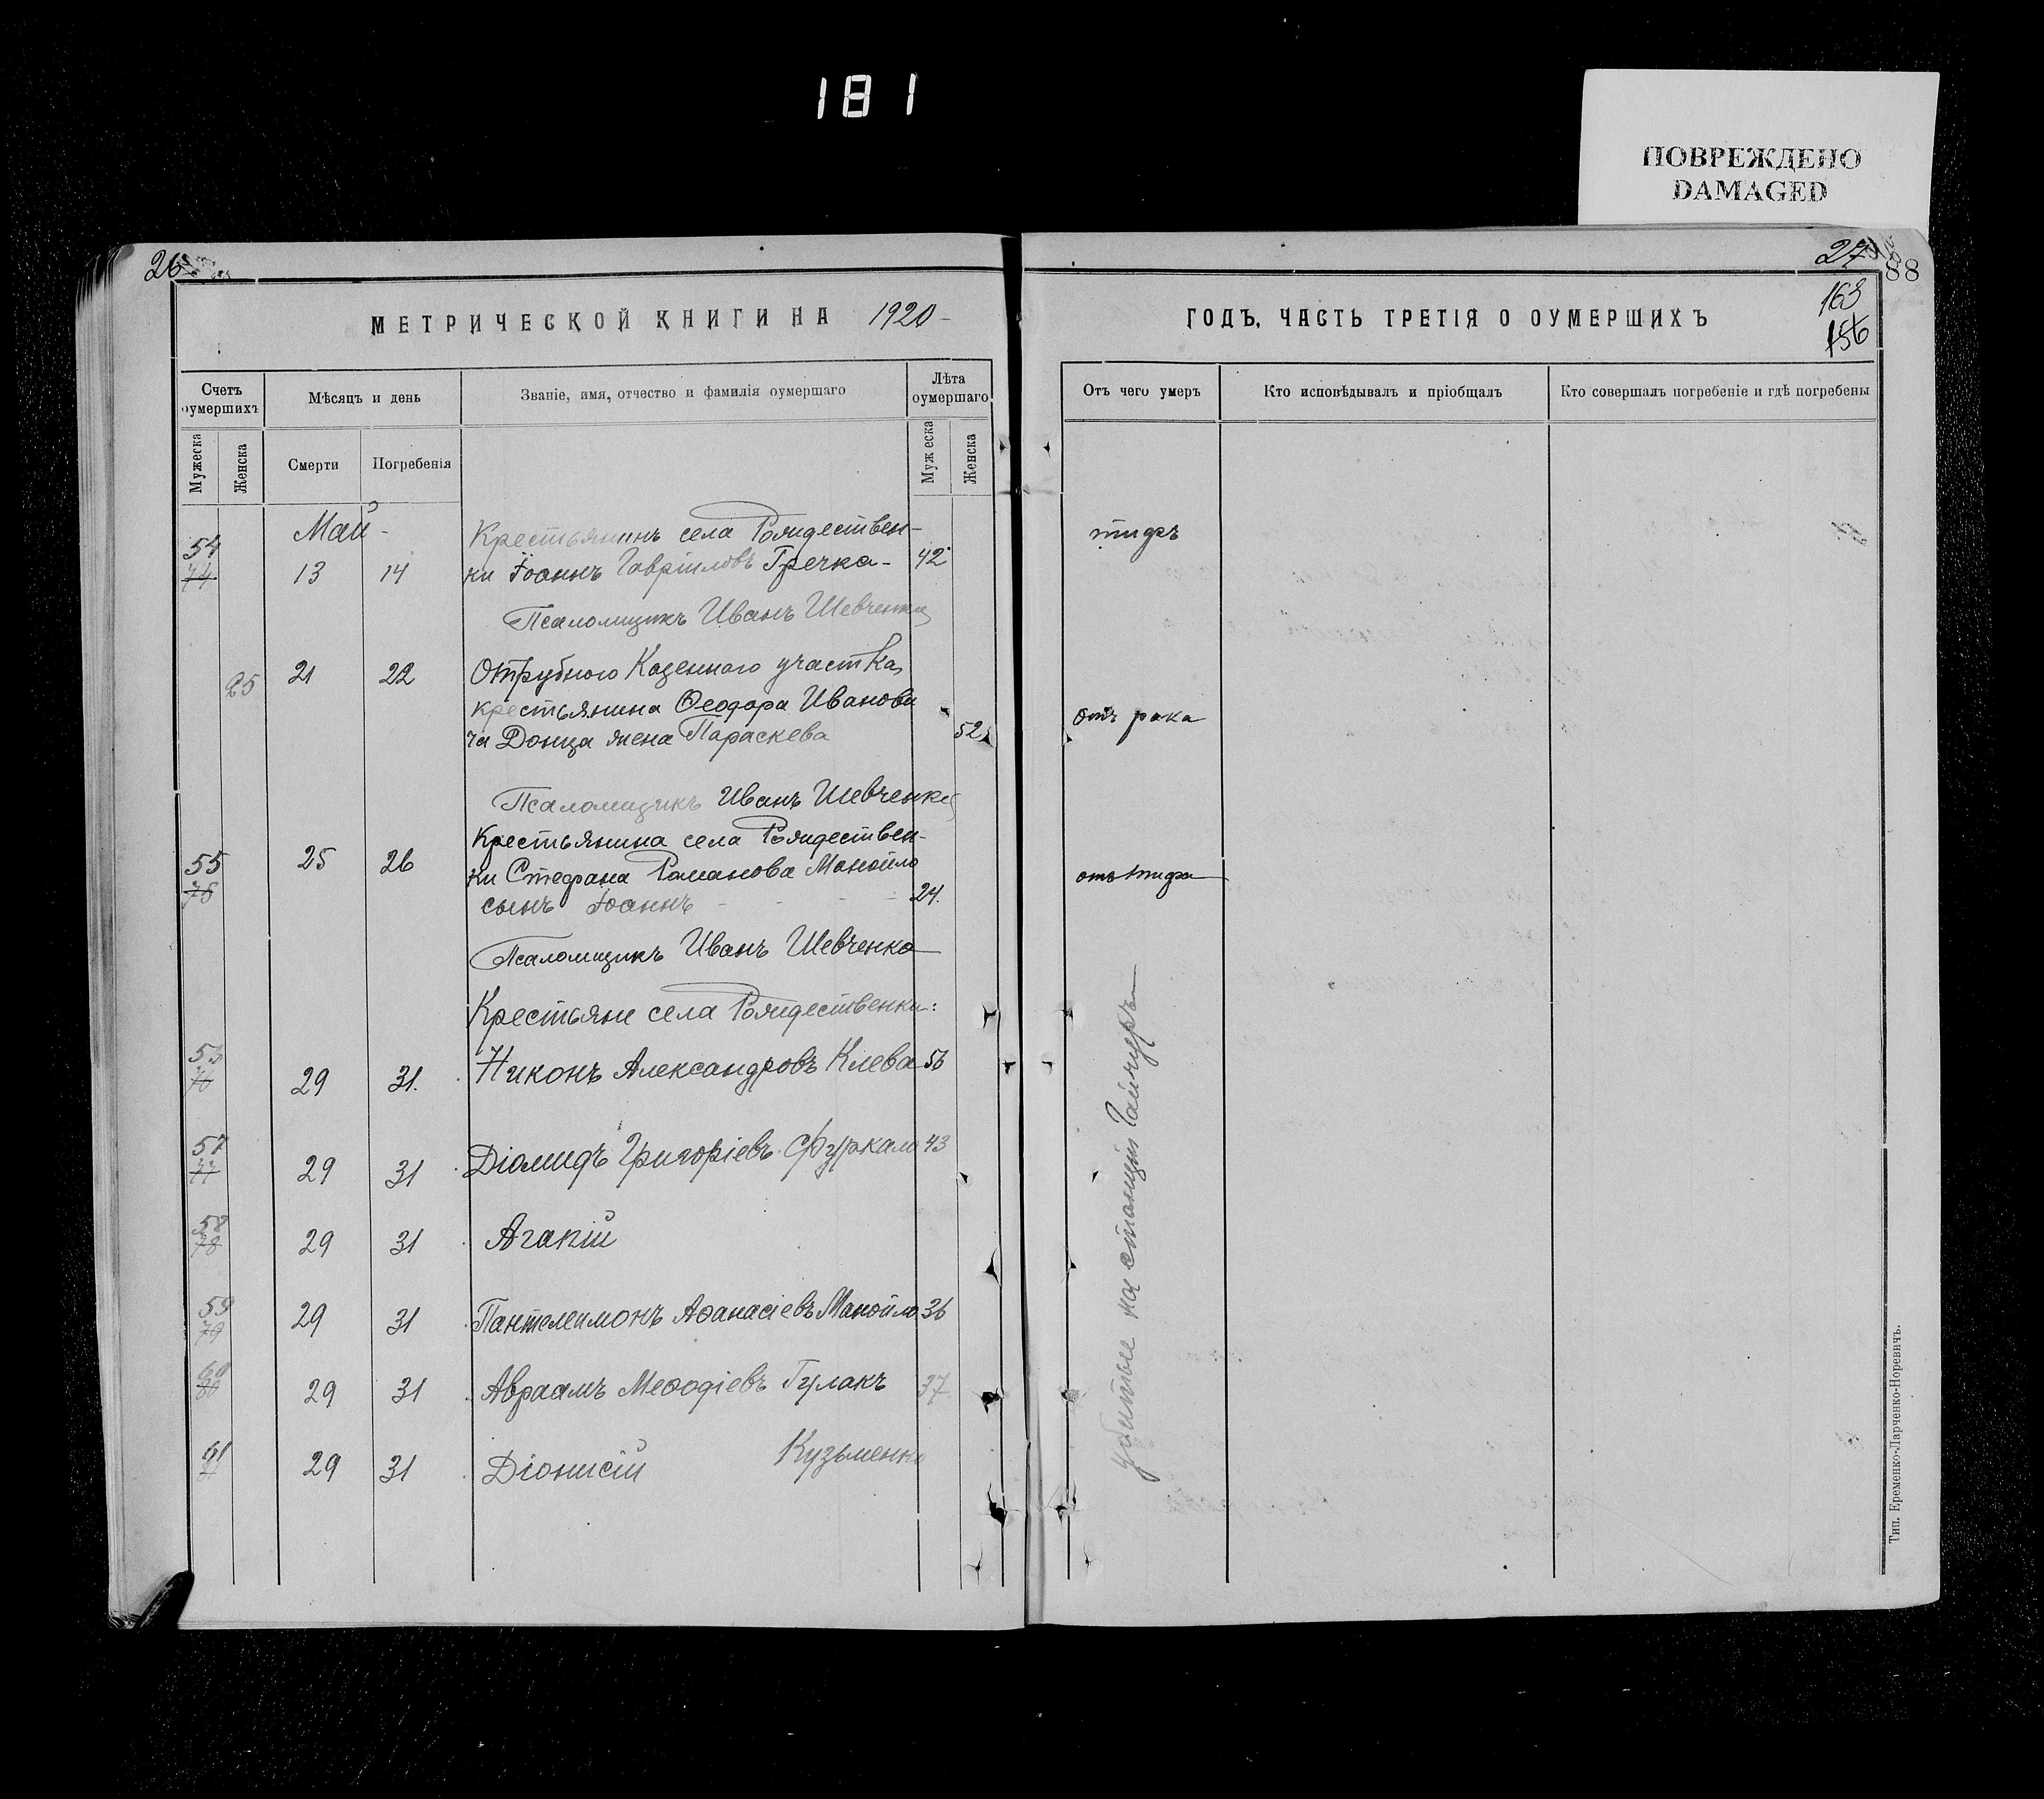 181
ПОВРЕЖДЕНО
DAMAGED
26
27
88
163
156
МЕТРИЧЕСКОЙ КНИГИ НА 1920 -
ГОДЪ, ЧАСТЬ ТРЕТІЯ О ОУМЕРШИХЪ
Счетъ оумершихъ
Мѣсяцъ и день
Званіе, имя, отчество и фамилія оумершаго
Лѣта оумершаго
Отъ чего умеръ
Кто исповѣдывалъ и пріобщалъ
Кто совершалъ погребеніе и гдѣ погребены
Мужеска
Женска
Смерти
Погребенія
Мужеска
Женска
Май -
Крестьянинъ села Рождествен-
54 74 13 14 ки Іоаннъ Гавріиловъ Гречка - 42 тифъ
Псаломщикъ Иванъ Шевченко
25 21 22 Отрубного Казеннаго участка,
крестьянина Ѳеодора Иванови
ча Донца жена Параскева 52 отъ рака
Псаломщикъ Иванъ Шевченко
Крестьянина села Рождествен-
55 75 25 26 ки Стефана Романова Манойло отъ тифа
сынъ Іоаннъ - - - - 24.
Псаломщикъ Иванъ Шевченко
Крестьяне села Рождественки:
56 76 29 31. Никонъ Александровъ Клева 56
57 77 29 31 Діомидъ Григоріевъ Фуркало 43
58 78 29 31 Агапій
59 79 29 31 Пантелеимонъ Аѳанасіевъ Манойло 36
60 80 29 31 Авраамъ Меѳодіевъ Гулакъ 37
61 29 31 Діонисій Кузьменко
убитые на станціи Гайчуръ
Тип. Еременко-Ларченко-Норевичъ.